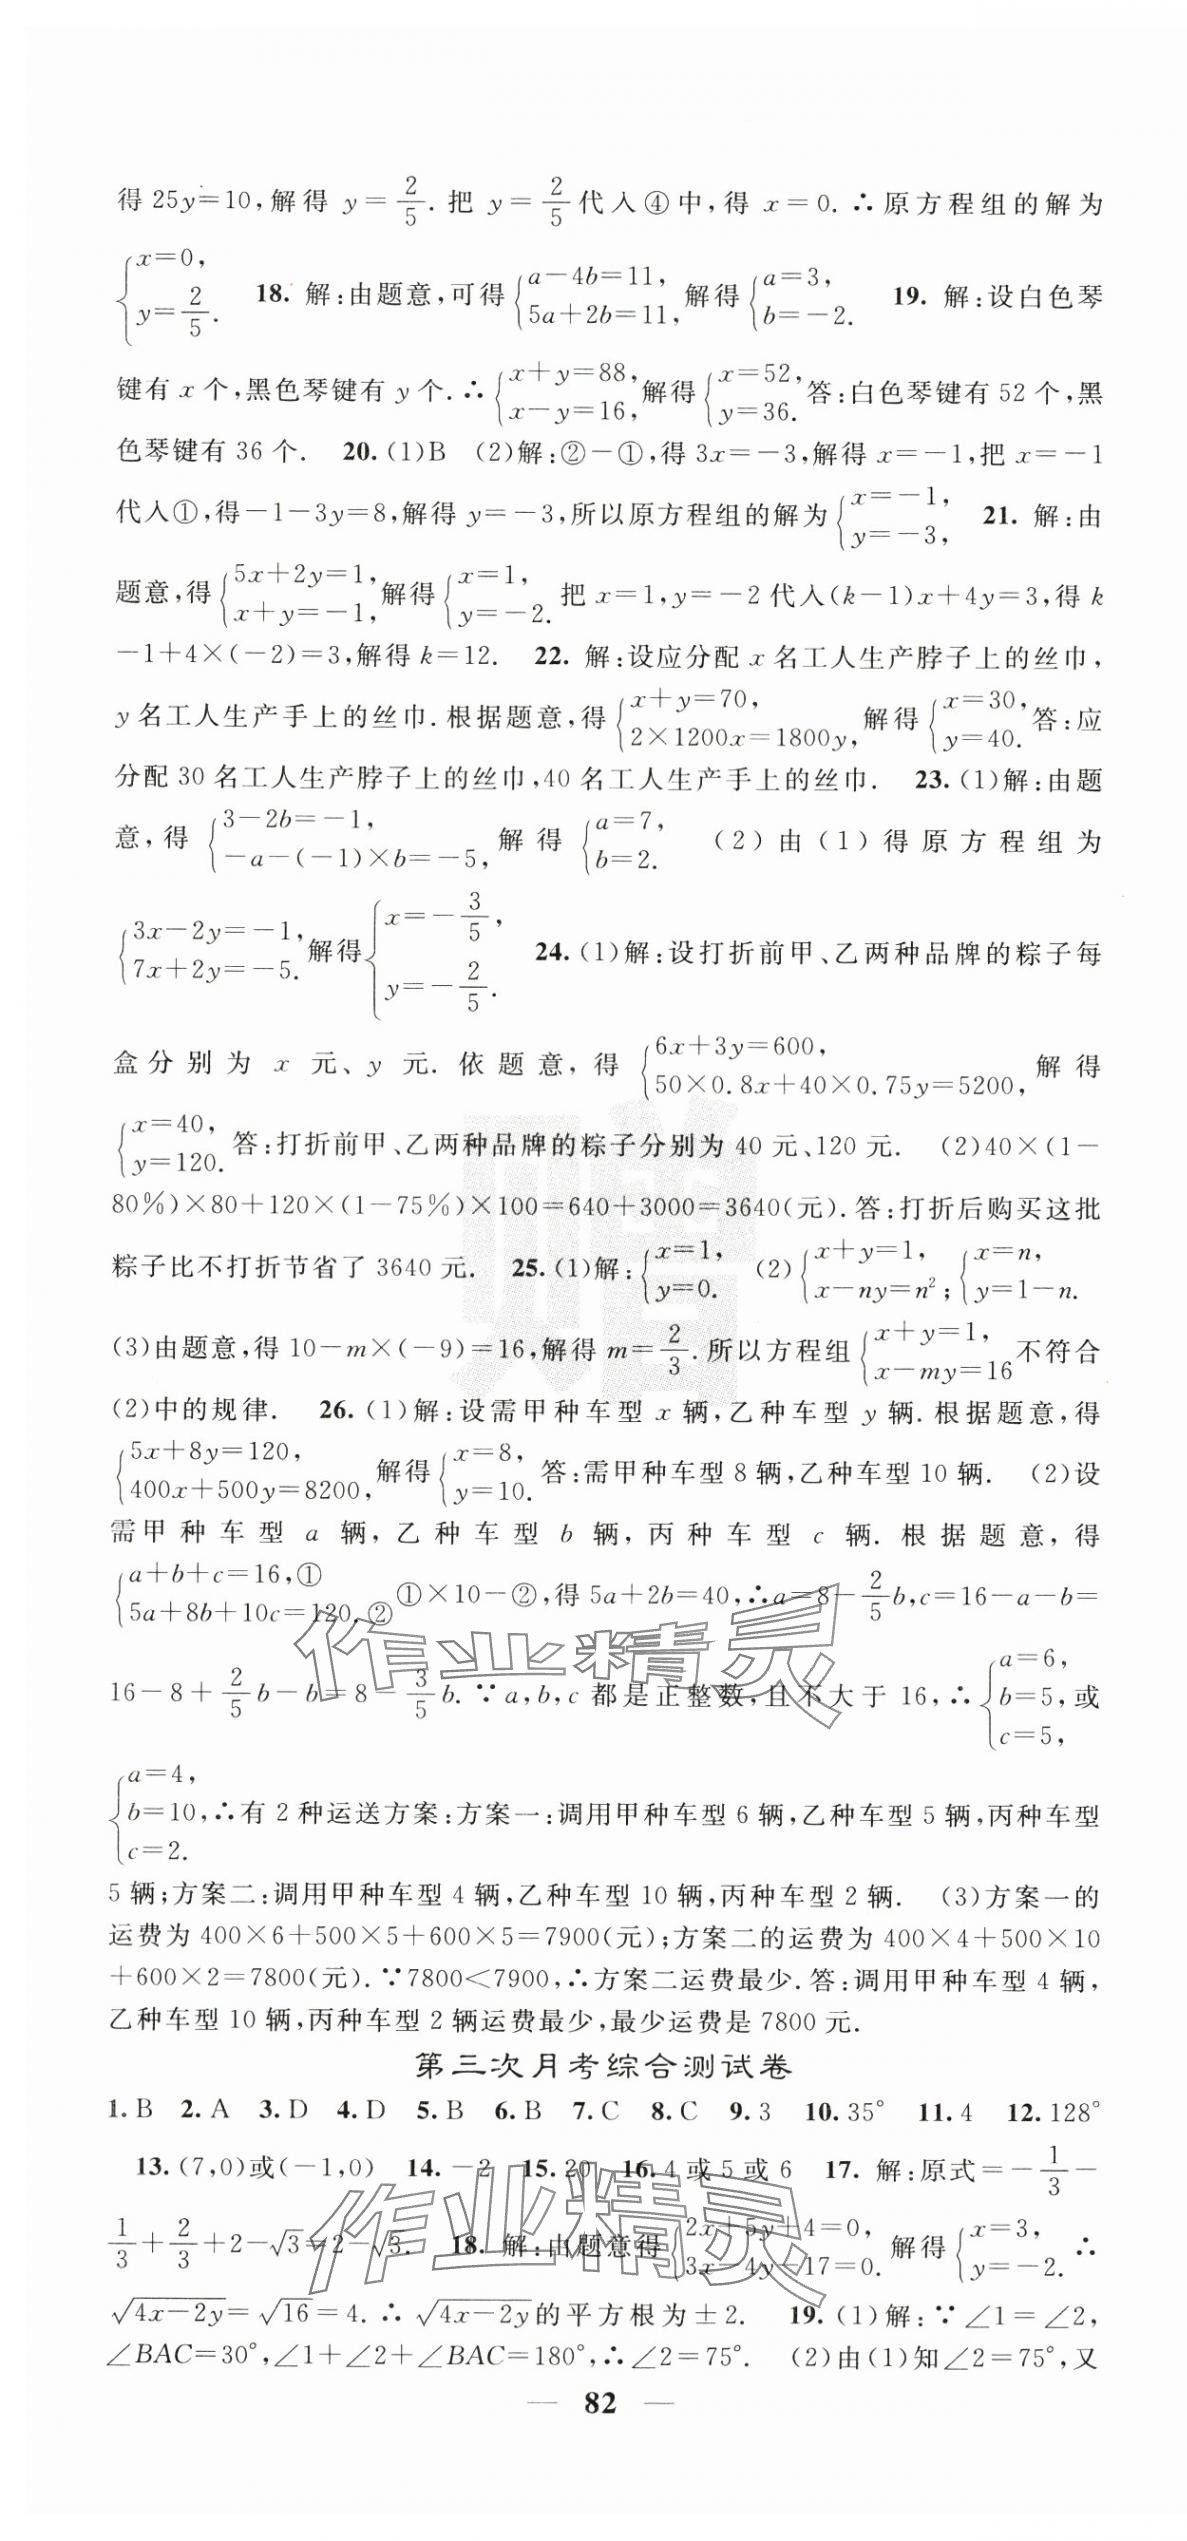 得 25y=10,解得 y=2/5. 把 y=2/5 代入④中,得 x=0. ∴原方程组的解为
{x=0, y=2/5.  18. 解:由题意,可得{a-4b=11, 5a+2b=11, 解得{a=3, b=-2.  19. 解:设白色琴
键有 x 个,黑色琴键有 y 个. ∴{x+y=88, x-y=16, 解得{x=52, y=36. 答:白色琴键有 52 个,黑
色琴键有 36 个.  20. (1)B  (2)解:②-①,得 3x=-3,解得 x=-1,把 x=-1
代入①,得-1-3y=8,解得 y=-3,所以原方程组的解为{x=-1, y=-3,  21. 解:由
题意,得{5x+2y=1, x+y=-1, 解得{x=1, y=-2. 把 x=1,y=-2 代入(k-1)x+4y=3,得 k
-1+4×(-2)=3,解得 k=12.  22. 解:设应分配 x 名工人生产脖子上的丝巾,
y 名工人生产手上的丝巾. 根据题意,得{x+y=70, 2×1200x=1800y, 解得{x=30, y=40. 答:应
分配 30 名工人生产脖子上的丝巾,40 名工人生产手上的丝巾.  23. (1)解:由题
意,得{3-2b=-1, -a-(-1)×b=-5, 解得{a=7, b=2.  (2)由(1)得原方程组为
{3x-2y=-1, 7x+2y=-5. 解得{x=-3/5, y=-2/5.  24. (1)解:设打折前甲、乙两种品牌的粽子每
盒分别为 x 元、y 元. 依题意,得{6x+3y=600, 50×0.8x+40×0.75y=5200, 解得
{x=40, y=120. 答:打折前甲、乙两种品牌的粽子分别为 40 元、120 元.  (2)40×(1-
80%)×80+120×(1-75%)×100=640+3000=3640(元). 答:打折后购买这批
粽子比不打折节省了 3640 元.  25. (1)解:{x=1, y=0.  (2){x+y=1, x-ny=n²;{x=n, y=1-n.
(3)由题意,得 10-m×(-9)=16,解得 m=2/3. 所以方程组{x+y=1, x-my=16 不符合
(2)中的规律.  26. (1)解:设需甲种车型 x 辆,乙种车型 y 辆. 根据题意,得
{5x+8y=120, 400x+500y=8200, 解得{x=8, y=10. 答:需甲种车型 8 辆,乙种车型 10 辆.  (2)设
需甲种车型 a 辆,乙种车型 b 辆,丙种车型 c 辆. 根据题意,得
{a+b+c=16,① 5a+8b+10c=120.② ①×10-②,得 5a+2b=40,∴a=8-2/5b,c=16-a-b=
16-8+2/5b-b=8-3/5b. ∵a,b,c 都是正整数,且不大于 16,∴{a=6, b=5, c=5, 或
{a=4, b=10, c=2. ∴有 2 种运送方案:方案一:调用甲种车型 6 辆,乙种车型 5 辆,丙种车型
5 辆;方案二:调用甲种车型 4 辆,乙种车型 10 辆,丙种车型 2 辆.  (3)方案一的
运费为 400×6+500×5+600×5=7900(元);方案二的运费为 400×4+500×10
+600×2=7800(元). ∵7800<7900,∴方案二运费最少. 答:调用甲种车型 4 辆,
乙种车型 10 辆,丙种车型 2 辆运费最少,最少运费是 7800 元.
第三次月考综合测试卷
1. B  2. A  3. D  4. D  5. B  6. B  7. C  8. C  9. 3  10. 35°  11. 4  12. 128°
13. (7,0)或(-1,0)  14. -2  15. 20  16. 4 或 5 或 6  17. 解:原式=-1/3-
1/3+2/3+2-√3=2-√3.  18. 解:由题意得{2x+5y+4=0, 3x-4y-17=0. 解得{x=3, y=-2. ∴
√(4x-2y)=√16=4. ∴√(4x-2y)的平方根为±2.  19. (1)解:∵∠1=∠2,
∠BAC=30°,∠1+∠2+∠BAC=180°,∴∠2=75°.  (2)由(1)知∠2=75°,又
— 82 —
赠
作业精灵
作业精灵